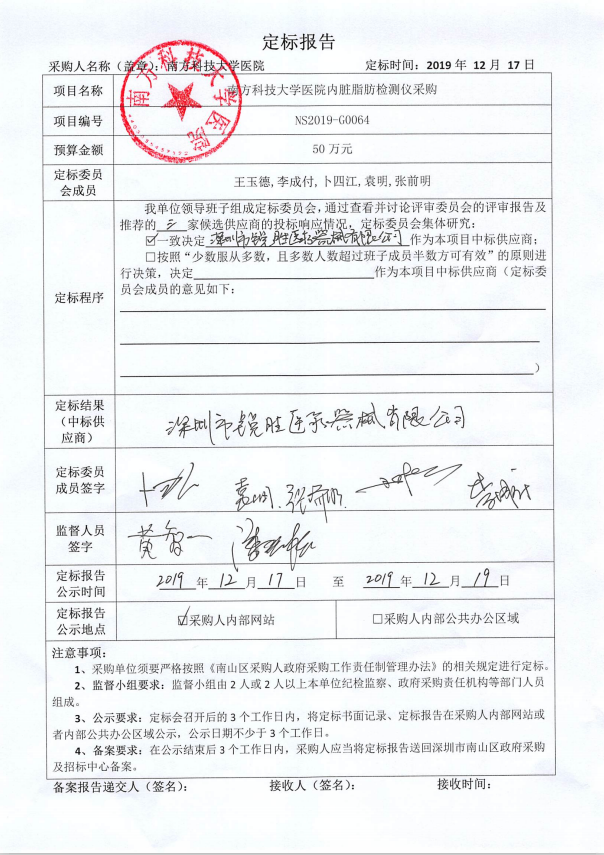 定标报告
采购人名称（盖章）：南方科技大学医院 定标时间：2019 年 12 月 17 日
南方科技大学医院
项目名称 南方科技大学医院内脏脂肪检测仪采购
项目编号 NS2019-G0064
预算金额 50 万元
定标委员会成员 王玉德,李成付,卜四江,袁明,张前明
定标程序
我单位领导班子组成定标委员会，通过查看并讨论评审委员会的评审报告及
推荐的 三 家候选供应商的投标响应情况，定标委员会集体研究：
☑一致决定 深圳市锐胜医疗器械有限公司 作为本项目中标供应商；
□按照“少数服从多数，且多数人数超过班子成员半数方可有效”的原则进
行决策，决定 作为本项目中标供应商（定标委
员会成员的意见如下：
）
定标结果
（中标供
应商）
深圳市锐胜医疗器械有限公司
定标委员
成员签字
监督人员
签字
黄智一
定标报告
公示时间
2019 年 12 月 17 日 至 2019 年 12 月 19 日
定标报告
公示地点
☑采购人内部网站 □采购人内部公共办公区域
注意事项：
1、采购单位须要严格按照《南山区采购人政府采购工作责任制管理办法》的相关规定进行定标。
2、监督小组要求：监督小组由 2 人或 2 人以上本单位纪检监察、政府采购责任机构等部门人员
组成。
3、公示要求：定标会召开后的 3 个工作日内，将定标书面记录、定标报告在采购人内部网站或
者内部公共办公区域公示，公示日期不少于 3 个工作日。
4、备案要求：在公示结束后 3 个工作日内，采购人应当将定标报告送回深圳市南山区政府采购
及招标中心备案。
备案报告递交人（签名）： 接收人（签名）： 接收时间：